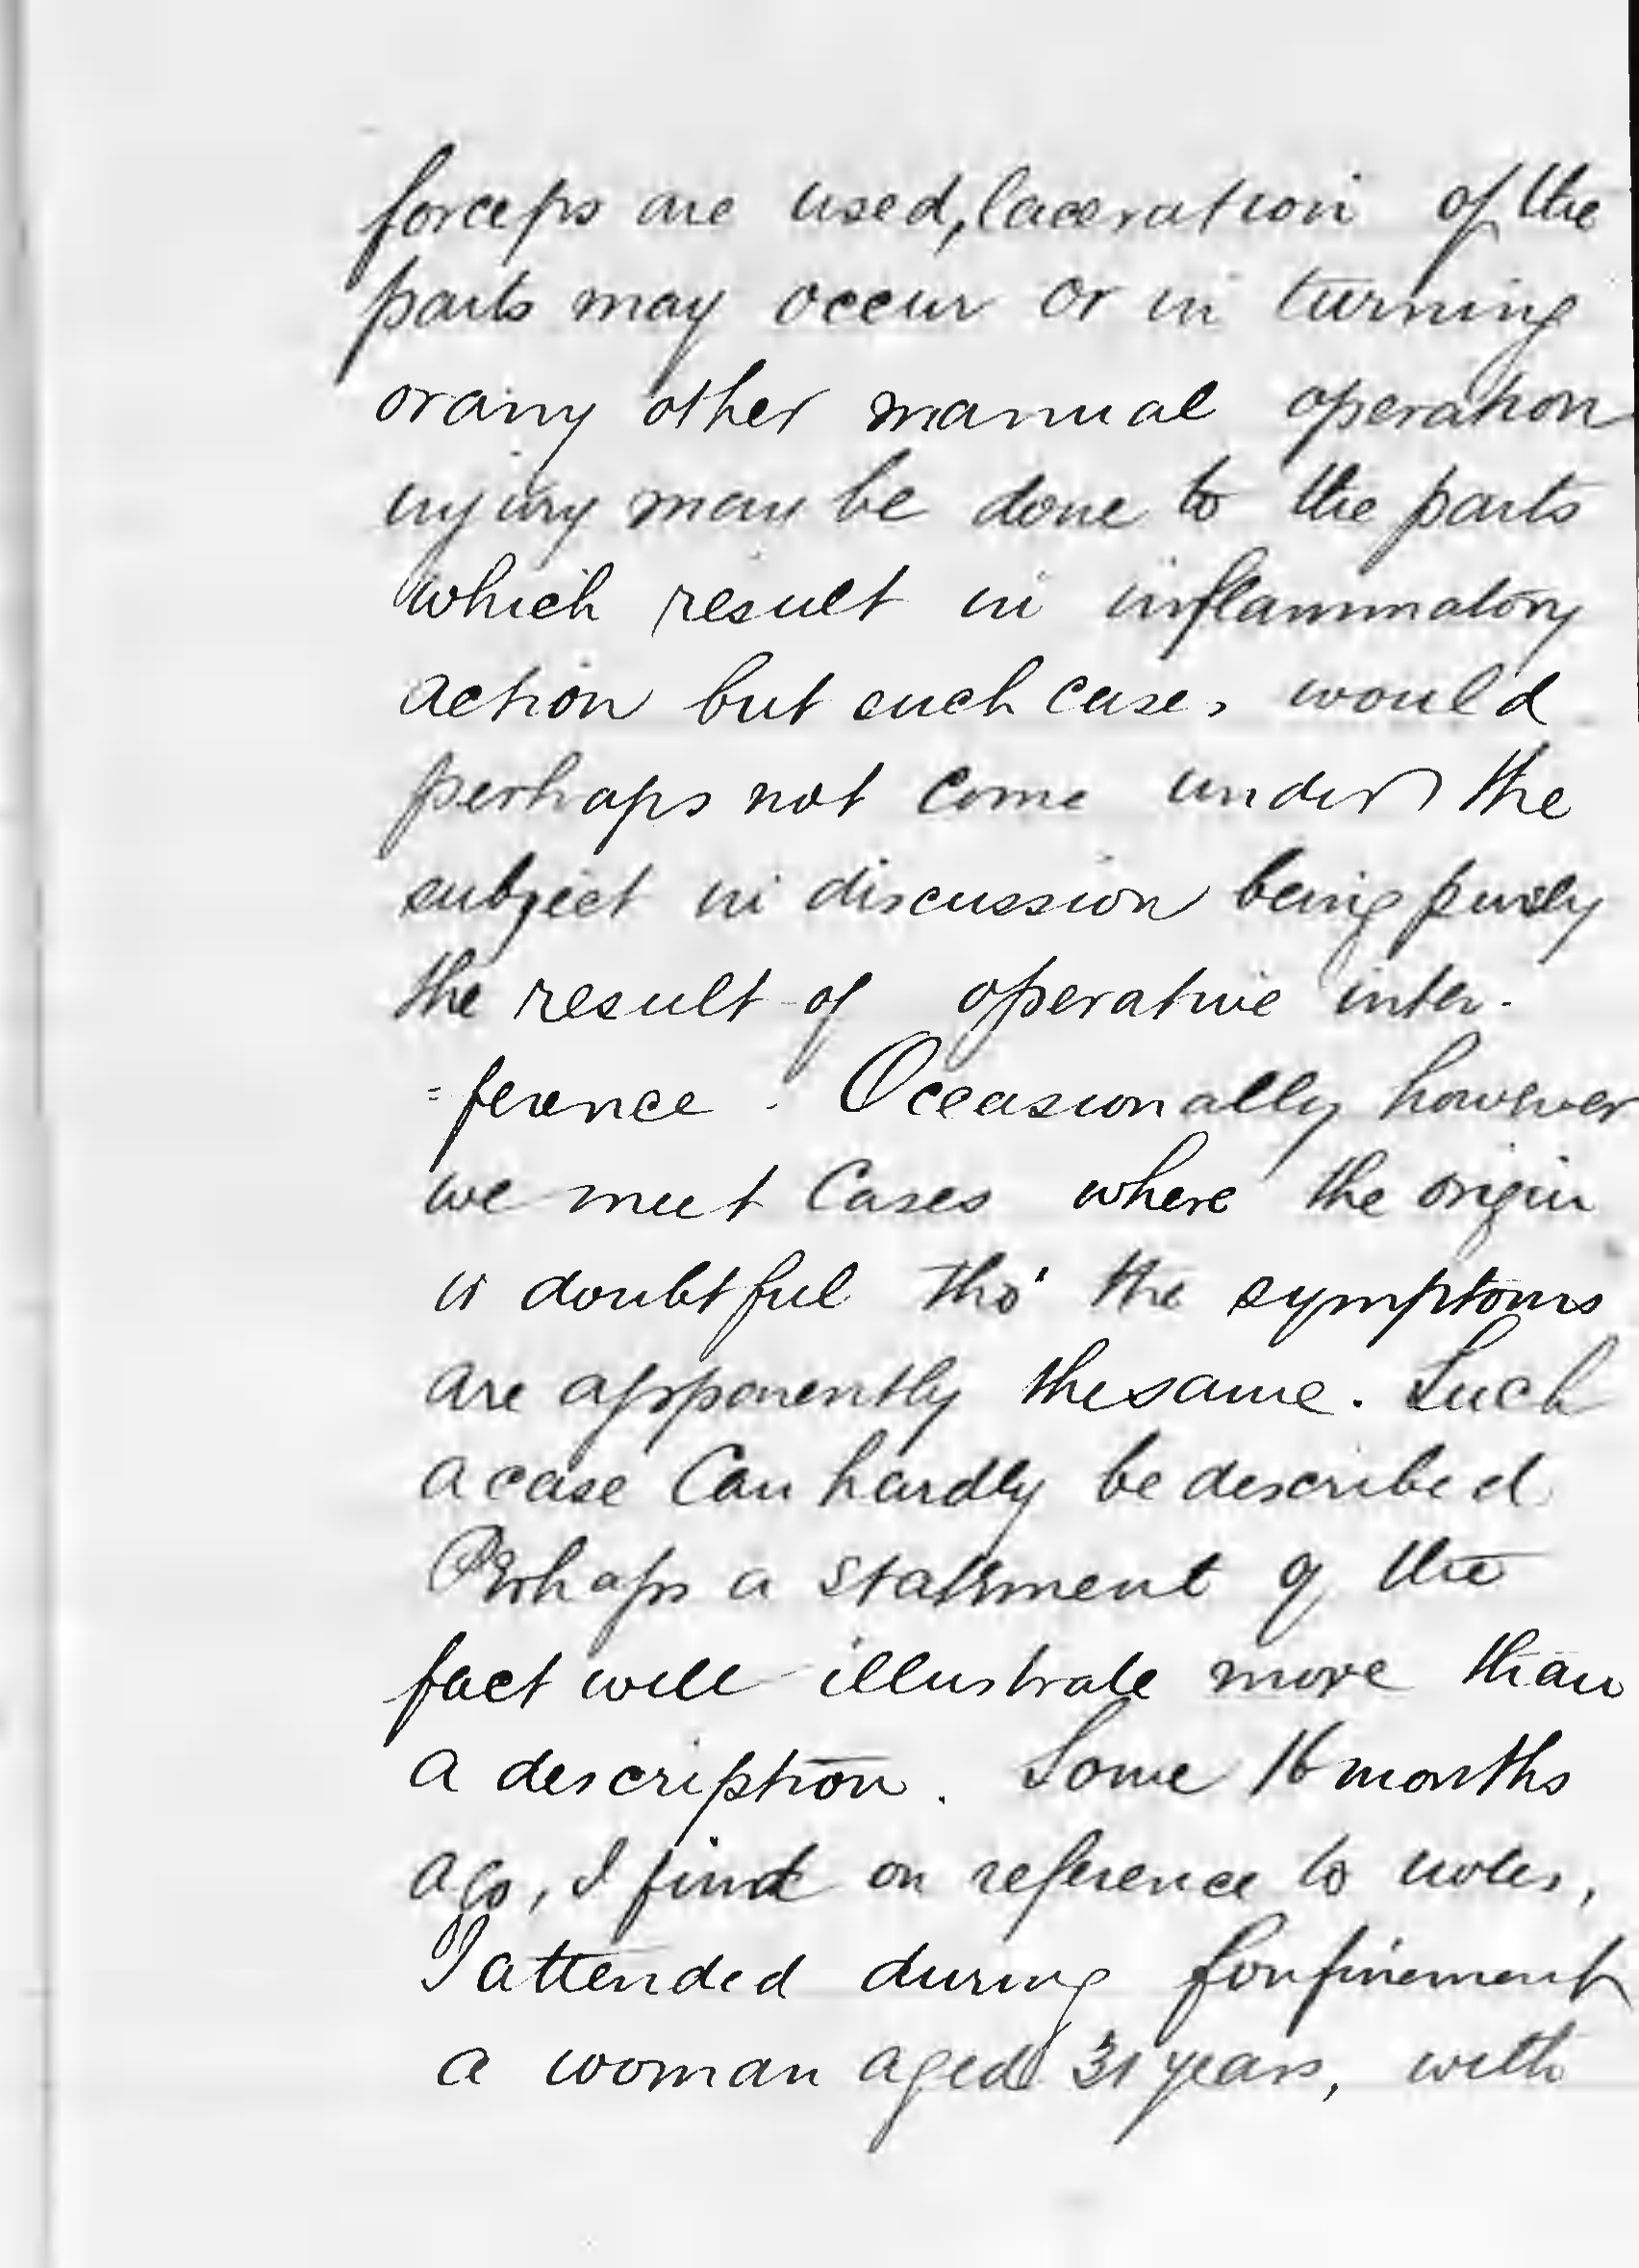 forceps are used, laceration of the
parts may occur or in turning
or any other manual operation
injury may be done to the parts
which result in inflammatory
action but such cases would
perhaps not come under the
subject in discussion being purely
the result of operative inter-
=ference. Occasionally however
we meet Cases where the origin
is doubtful tho' the symptoms
are apparently the same. Such
a case Can hardly be described
Perhaps a statement of the
fact will illustrate more than
a description. Some 16 months
ago, I find on reference to notes,
I attended during Confinement
a woman aged 31 years, with